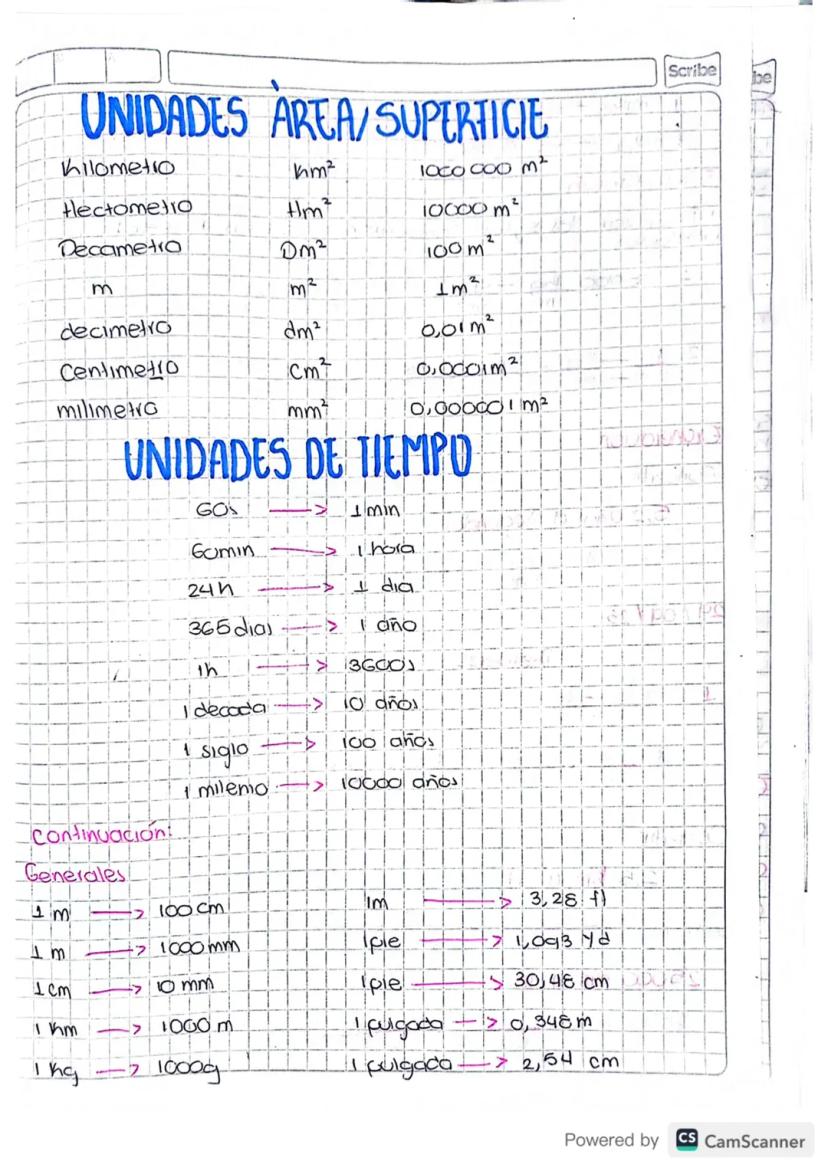 Scribe
be
UNIDADES ÀREA/SUPERFICIE
Kilometro km² 1000 000 m²
Hectometro Hm² 10000 m²
Decametro Dm² 100 m²
m m² 1m²
decimetro dm² 0,01 m²
Centimetro Cm² 0,0001m²
milimetro mm² 0,000001 m²
UNIDADES DE TIEMPO
60s → 1 min
60min → 1 hora
24h → 1 dia
365 dias → 1 año
1h → 3600s
1 decada → 10 años
1 siglo → 100 años
1 milenio → 10000 años
Continuación:
Generales
1 m → 100 cm 1m → 3,28 ft
1 m → 1000 mm 1pie → 1,093 yd
1 cm → 10 mm 1pie → 30,48 cm
1 km → 1000 m 1 pulgada → 0,348 m
1 kg → 1000g 1 pulgada → 2,54 cm
Powered by CS CamScanner